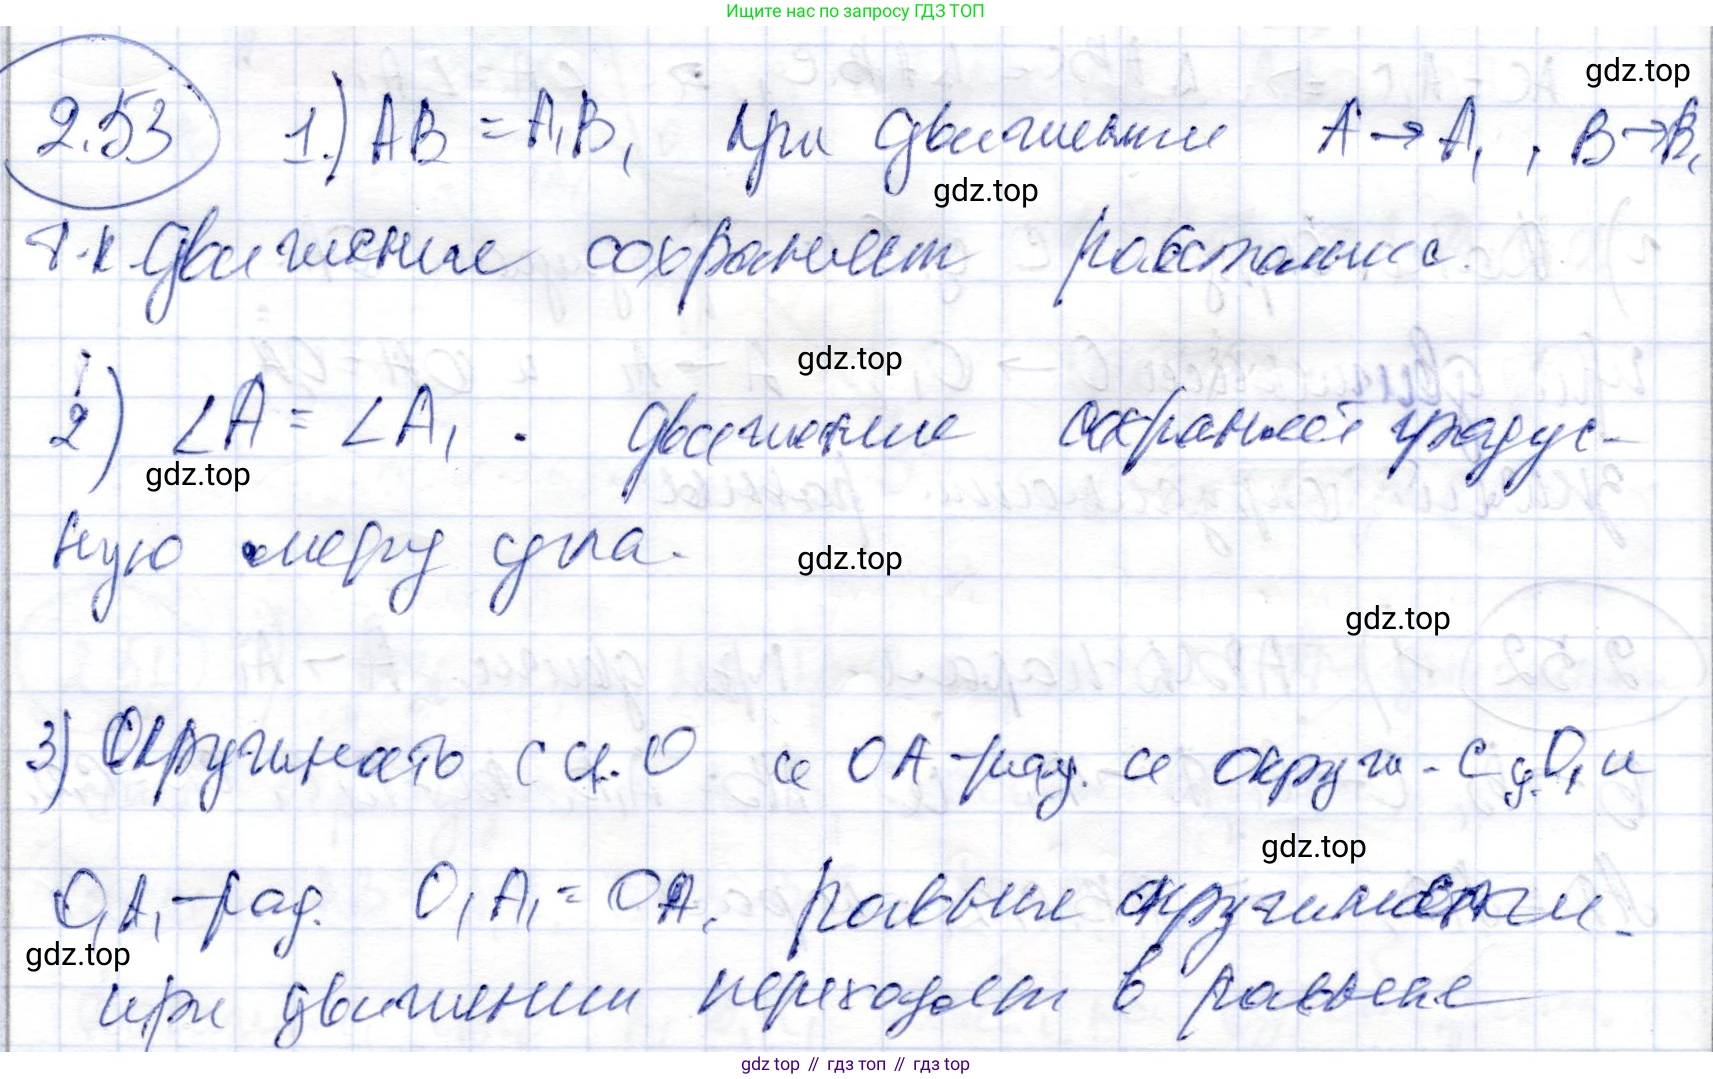 Ищите нас по запросу ГДЗ ТОП
gdz.top
2.53 1.) AB = A₁B₁ при движении A → A₁, B → B₁
gdz.top
т.к движение сохраняет расстояние.
gdz.top
2) ∠A = ∠A₁. движение сохраняет градус-
gdz.top
ную меру угла.
gdz.top
gdz.top
3) Окружность с ц. O и OA-рад. и окруж. с ц. O₁ и
gdz.top
O₁A₁-рад. O₁A₁ = OA. равные окружности
gdz.top
при движении переходят в равные
gdz.top // гдз топ // гдз top